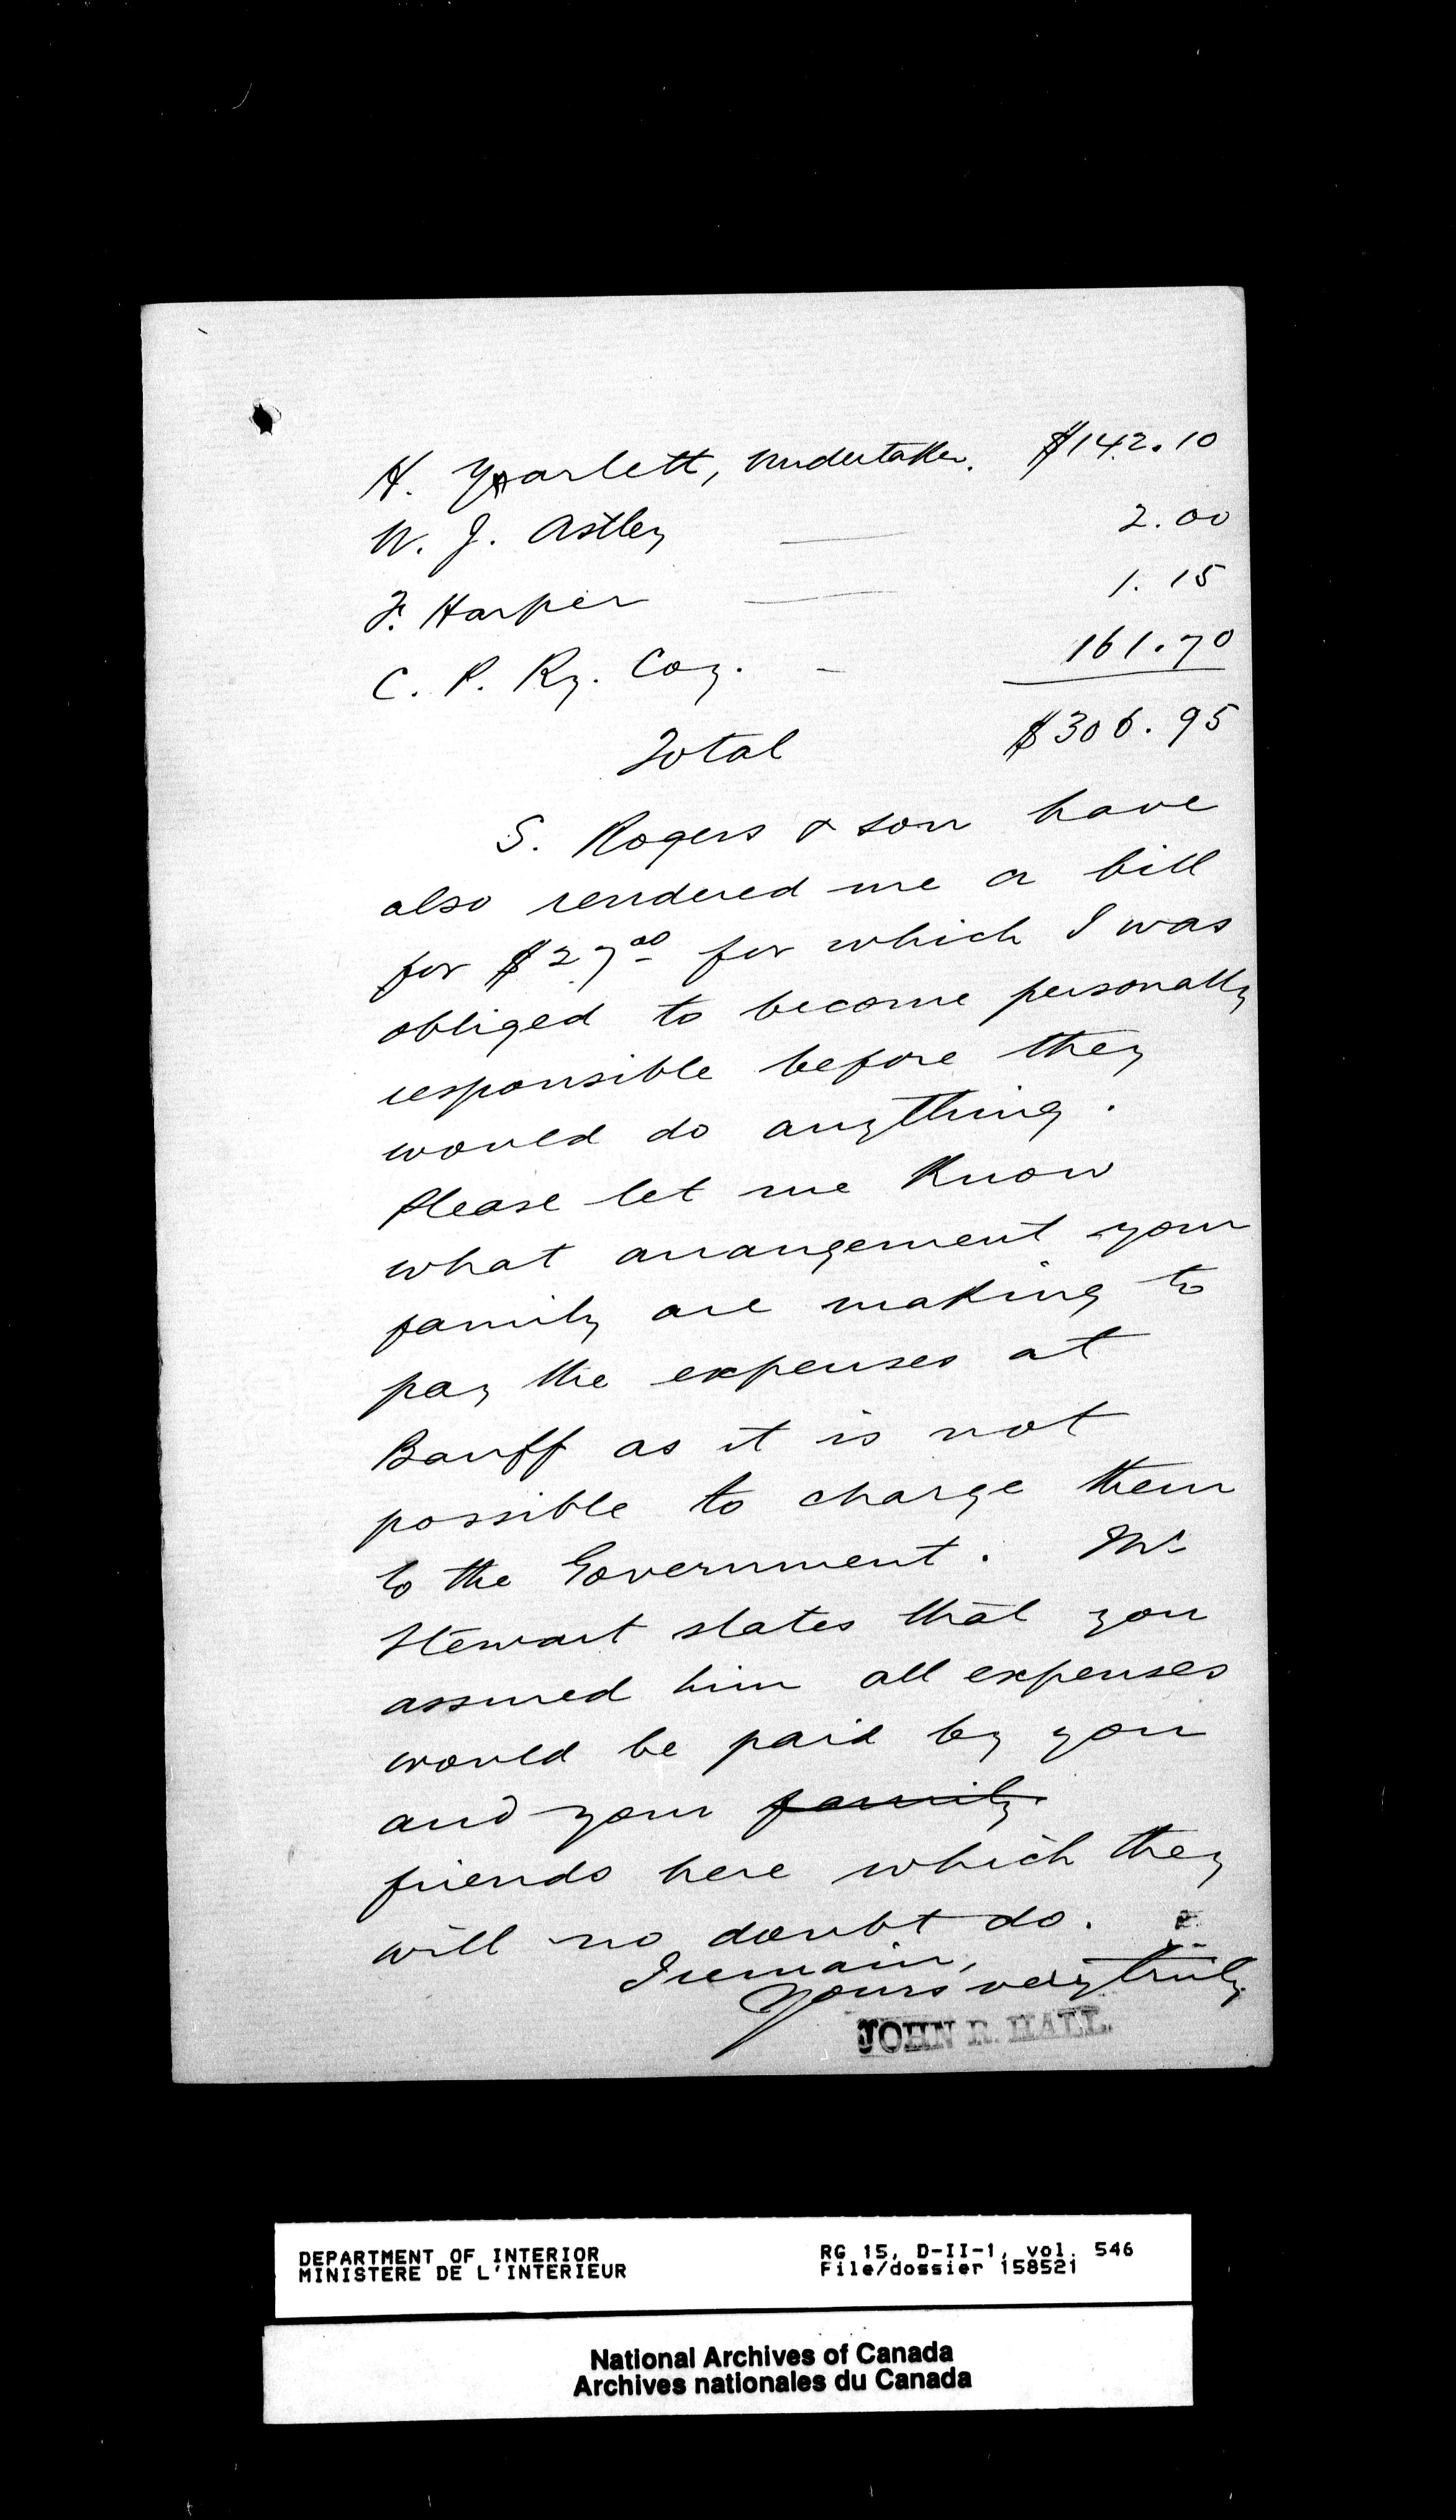 H. Yarlett, Undertaker. $142.10
W. J. Astley 2.00
F. Harper 1.15
C. P. Ry. Coy. - 161.70
Total $306.95
S. Rogers & son have
also rendered me a bill
for $27.00 for which I was
obliged to become personally
responsible before they
would do anything.
Please let me know
what arrangement your
family are making to
pay the expenses at
Banff as it is not
possible to charge them
to the Government. Mr
Stewart states that you
assured him all expenses
would be paid by you
and your family
friends here which they
will no doubt do.
I remain,
Yours very truly
JOHN R. HALL.
DEPARTMENT OF INTERIOR RG 15, D-II-1, vol. 546
MINISTERE DE L'INTERIEUR File/dossier 158521
National Archives of Canada
Archives nationales du Canada